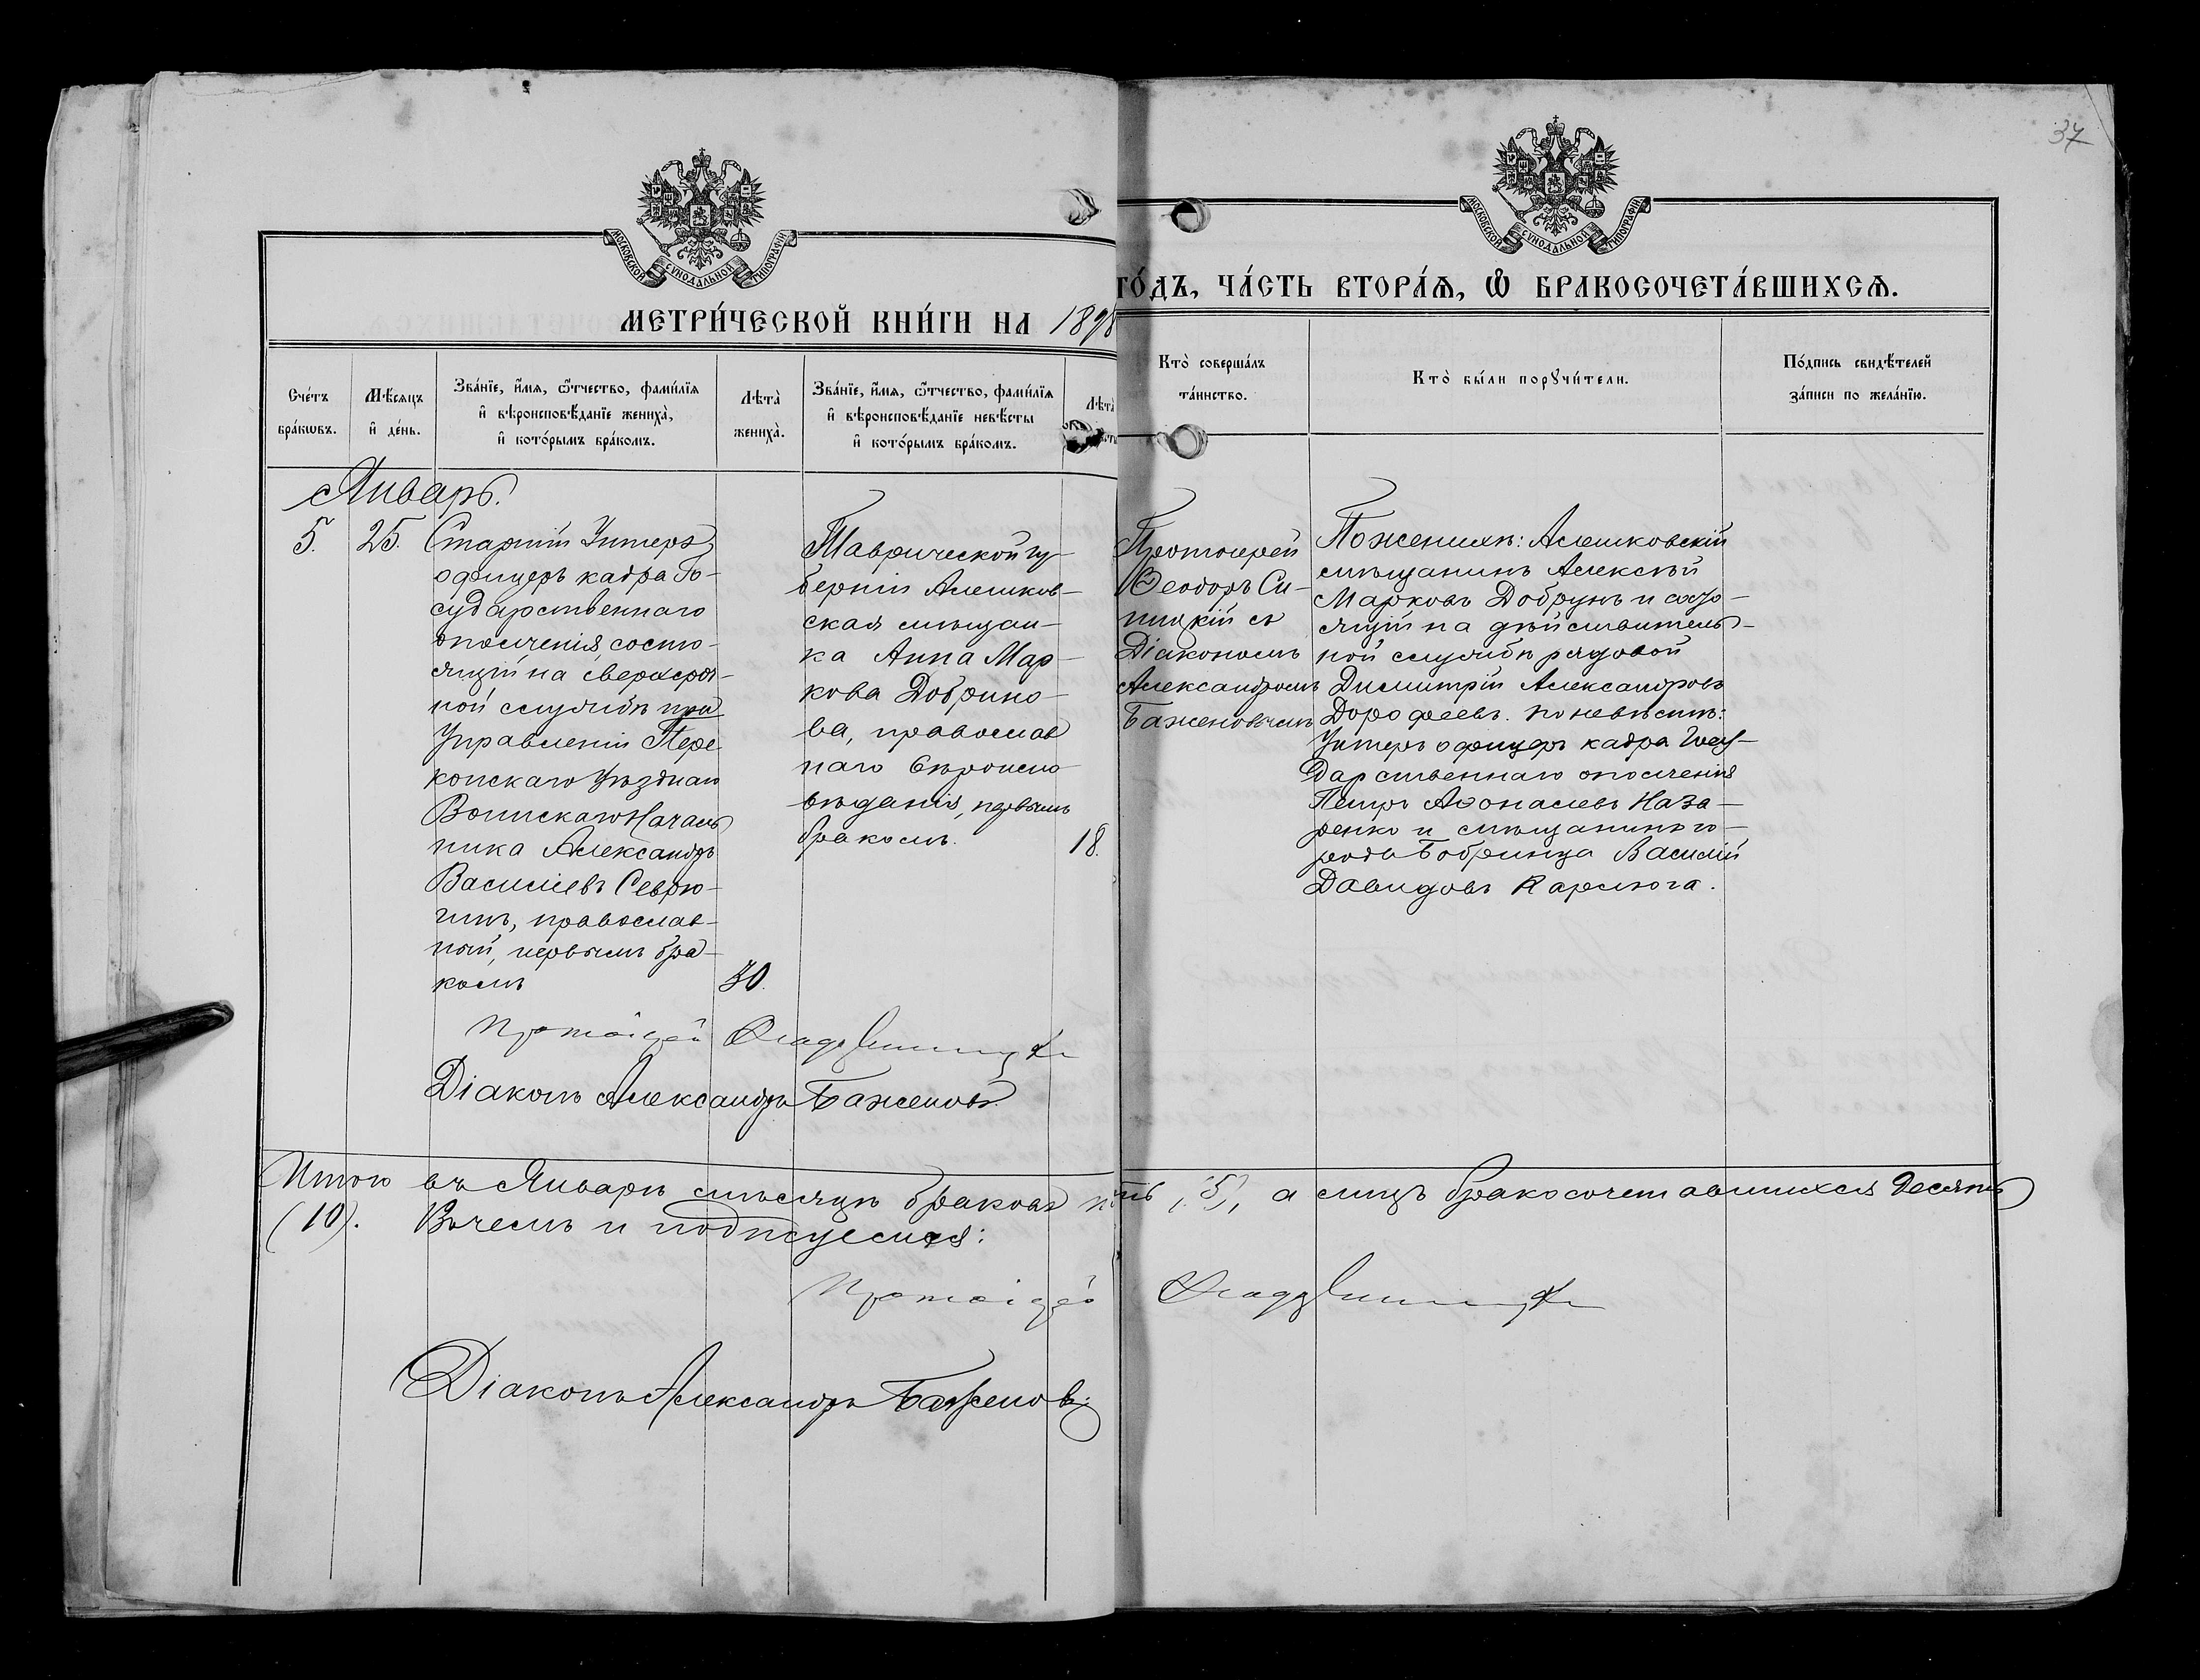 37
МОСКОВСКОЙ СѴНОДАЛЬНОЙ ТИПОГРАФІИ
МОСКОВСКОЙ СѴНОДАЛЬНОЙ ТИПОГРАФІИ
МЕТРИ́ЧЕСКОЙ КНИ́ГИ НА 1898
ГО́ДЪ, ЧА́СТЬ ВТОРА́Ѧ, Ѽ БРАКОСОЧЕТА́ВШИХСѦ.
Сче́тъ
бра́кѡвъ.
Мѣ́сяцъ
и҆ де́нь.
Зва́нїе, и҆́мя, ѻ҆́тчество, фами́лїя
и҆ вѣроисповѣ́данїе жениха̀,
и҆ кото́рымъ бра́комъ.
Лѣта̀
жениха̀.
Зва́нїе, и҆́мя, ѻ҆́тчество, фами́лїя
и҆ вѣроисповѣ́данїе невѣ́сты
и҆ кото́рымъ бра́комъ.
Лѣта̀
Кто̀ соверша́лъ
та́инство.
Кто̀ бы́ли порꙋчи́тели.
По́дпись свидѣ́телей
за́писи по жела́нїю.
Январь.
5.
25.
Старшій Унтеръ
офицеръ кадра Го-
сударственнаго
ополченія, состо-
ящій на сверхсроч-
ной службѣ при
Управленіи Пере
копскаго Уѣзднаго
Воинскаго Началь
ника Александръ
Василіевъ Севрю-
гинъ, православ-
ный, первымъ бра-
комъ
30.
Таврической гу-
берніи Алешков-
ская мѣщан-
ка Анна Мар-
кова Добрино-
ва, православ
наго вѣроиспо-
вѣданія, первымъ
бракомъ.
18.
Протоіерей
Ѳеодоръ Си-
ницкій съ
Діакономъ
Александромъ
Баженовымъ
По женихѣ: Алешковскій
мѣщанинъ Алексѣй
Марковъ Добрунъ и состо-
ящій на дѣйствитель-
ной службѣ рядовой
Димитрій Александровъ
Дорофеевъ. по невѣстѣ:
Унтеръ офицеръ кадра Госу-
дарственнаго ополченія
Петръ Аѳонасіевъ Наза-
ренко и мѣщанинъ го-
рода Бобринца Василій
Давидовъ Кармога.
Протоіерей
Діаконъ Александръ Баженовъ
Итого въ Январѣ мѣсяцѣ браковъ пять (5), а лицъ бракосочетавшихся десять
(10). Въ чемъ и подписуемся:
Протоіерей
Діаконъ Александръ Баженовъ